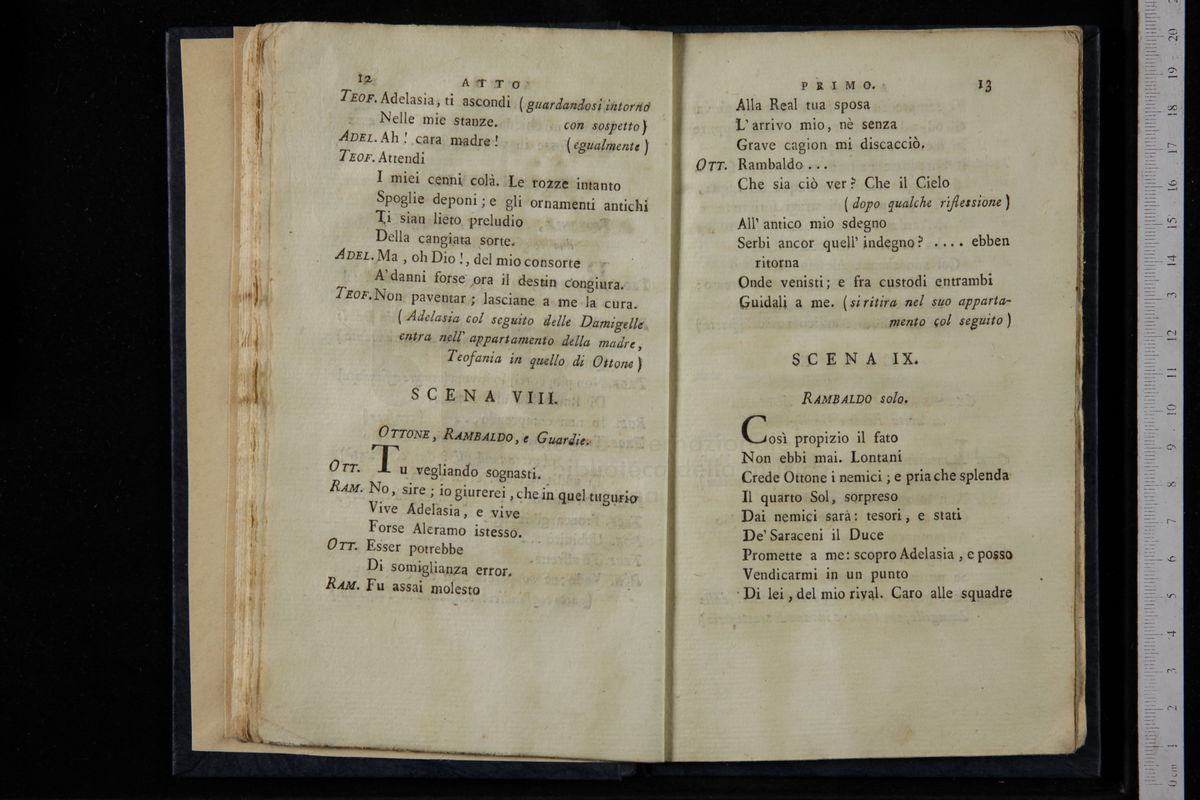 12 ATTO
TEOF. Adelasia, ti ascondi (guardandosi intorno
Nelle mie stanze. con sospetto)
ADEL. Ah! cara madre! (egualmente)
TEOF. Attendi
I miei cenni colà. Le rozze intanto
Spoglie deponi; e gli ornamenti antichi
Ti sian lieto preludio
Della cangiata sorte.
ADEL. Ma, oh Dio!, del mio consorte
A' danni forse ora il destin congiura.
TEOF. Non paventar; lasciane a me la cura.
(Adelasia col seguito delle Damigelle
entra nell' appartamento della madre,
Teofania in quello di Ottone)
SCENA VIII.
OTTONE, RAMBALDO, e Guardie.
OTT. Tu vegliando sognasti.
RAM. No, sire; io giurerei, che in quel tugurio
Vive Adelasia, e vive
Forse Aleramo istesso.
OTT. Esser potrebbe
Di somiglianza error.
RAM. Fu assai molesto
PRIMO. 13
Alla Real tua sposa
L' arrivo mio, nè senza
Grave cagion mi discacciò.
OTT. Rambaldo ...
Che sia ciò ver? Che il Cielo
(dopo qualche riflessione)
All' antico mio sdegno
Serbi ancor quell' indegno? .... ebben
ritorna
Onde venisti; e fra custodi entrambi
Guidali a me. (si ritira nel suo apparta-
mento col seguito)
SCENA IX.
RAMBALDO solo.
Così propizio il fato
Non ebbi mai. Lontani
Crede Ottone i nemici; e pria che splenda
Il quarto Sol, sorpreso
Dai nemici sarà: tesori, e stati
De' Saraceni il Duce
Promette a me: scopro Adelasia, e posso
Vendicarmi in un punto
Di lei, del mio rival. Caro alle squadre